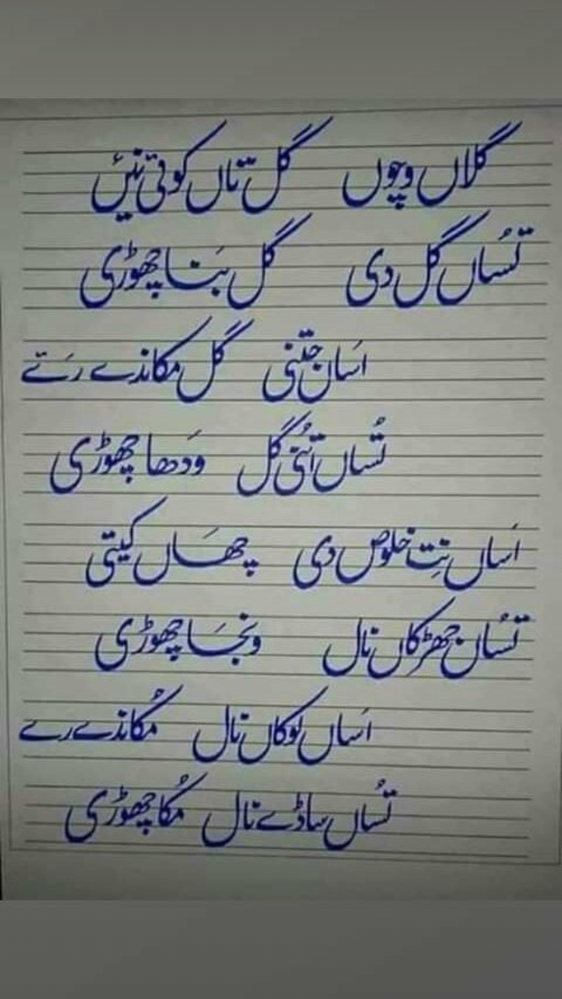 گلاں وچوں گل تاں کوئی نیئں
تُساں گل دی گل بَنا چھوڑی
اَساں جتنی گل مکاندے رَئے
تُساں اُتنی گل وَدھا چھوڑی
اَساں نِت خلوص دی چھَاں کیتی
تُساں جھڑکاں نال ونجَا چھوڑی
اَساں لوکاں نال مُکاندے رے
تُساں ساڈے نال مُکا چھوڑی